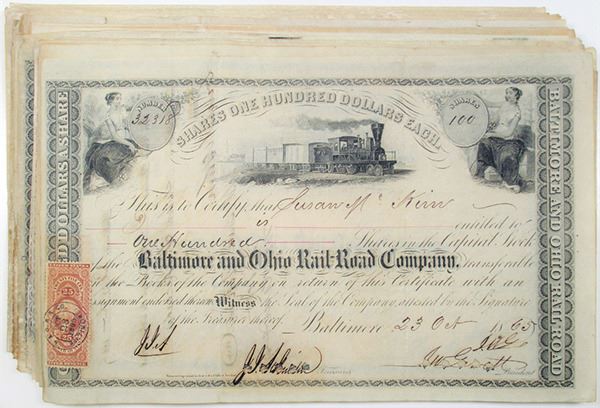 NUMBER
32318
SHARES ONE HUNDRED DOLLARS EACH.
SHARES
100
This is to Certify, that Susan Mc Kim
is entitled to
One Hundred Shares in the Capital Stock
of the Baltimore and Ohio Rail-Road Company, transferable
in the Books of the Company on return of this Certificate with an
assignment endorsed thereon Witness the Seal of the Company, attested by the Signature
of the Treasurer thereof. Baltimore 23 Oct 1865
Treasurer
President
D DOLLARS A SHARE
BALTIMORE AND OHIO RAIL-ROAD
25
25